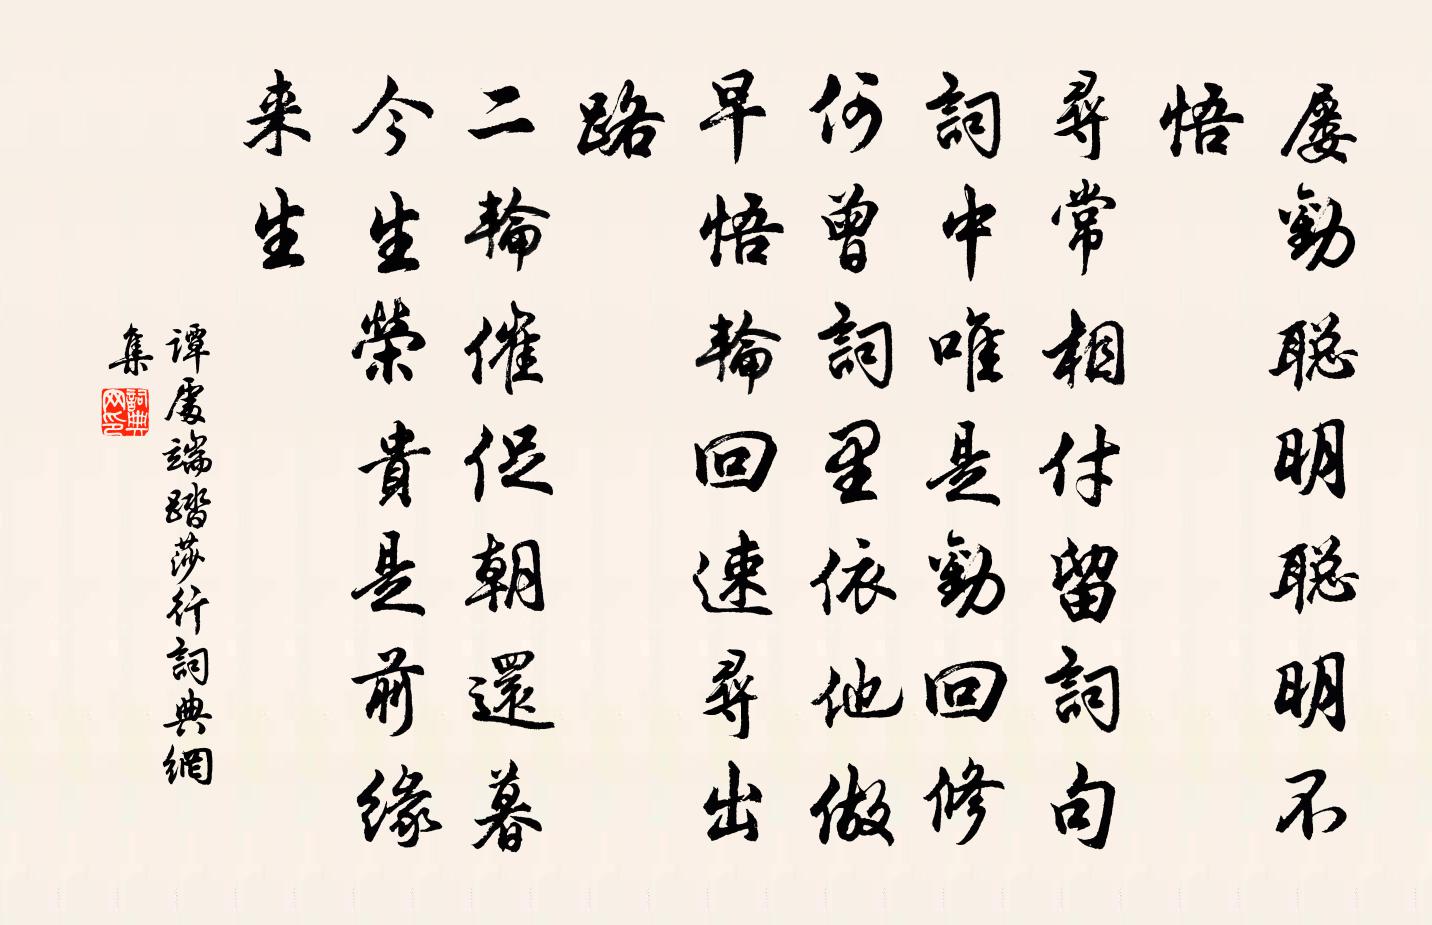 屡勸聪明聪明不
悟
尋常相付留詞句
詞中唯是勸回修
何曾詞里依他做
早悟輪回速尋出
路
二輪催促朝還暮
今生榮貴是前缘
来生
谭處端踏莎行詞典網
集
詞典
网印